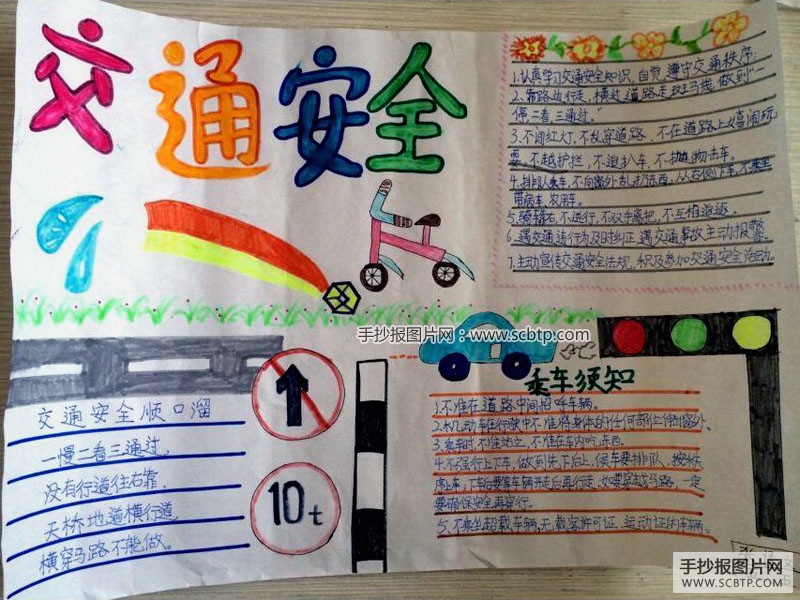 交通安全
1.认真学习交通安全知识,自觉遵守交通秩序.
2.靠路边行走,横过道路走斑马线,做到"一
停二看三通过。
3.不闯红灯,不乱穿道路,不在道路上嬉闹玩
耍,不越护拦,不追扒车,不抛物击车。
4.排队乘车,不向窗外乱扔东西,从右侧下车,不乘坐
带病车、农用车。
5.骑车靠右,不逆行,不双手离把,不互相追逐。
6.遇交通违行为及时纠正,遇交通事故主动报警
7.主动宣传交通安全法规,积及参加交通安全活动。
手抄报图片网:www.scbtp.com
乘车须知
1.不准在道路中间招呼车辆。
2.机动车在行驶中不准将身体的任何部任伸出窗外。
3.乘车时不准站立,不准在车内吃东西.
4.不强行上下车,做到先下后上,候车要排队、按秩
5.不乘坐超载车辆,无载客许可证、运动证的车辆。
交通安全顺口溜
一慢二看三通过,
没有行道往右靠.
天桥地道横行道,
横穿马路不能做。
10t
手抄报图片网
WWW.SCBTP.COM